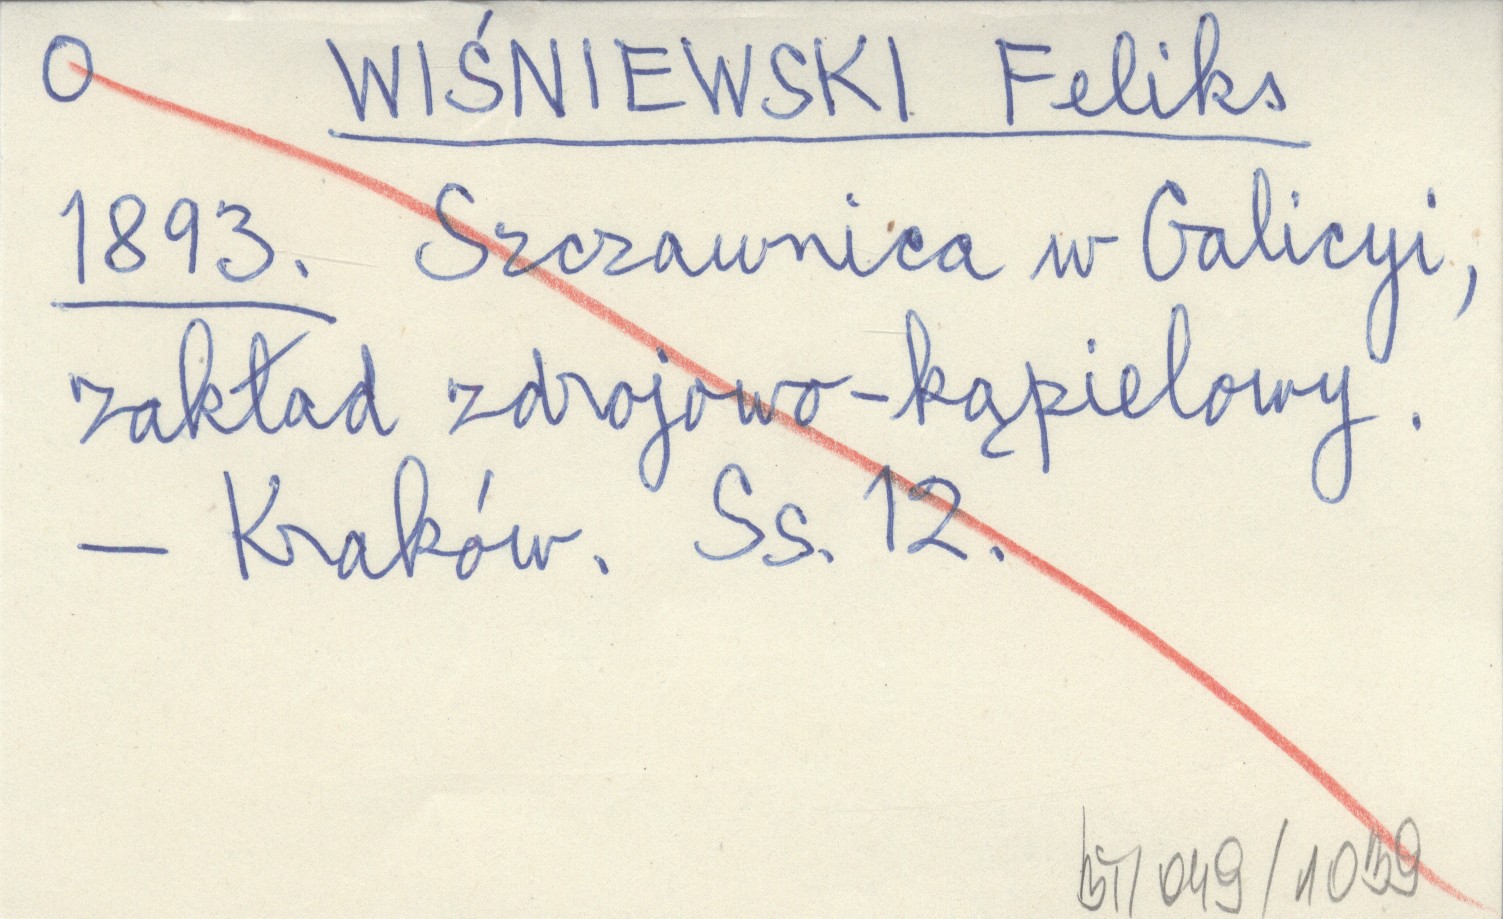 O WIŚNIEWSKI Feliks
1893. Szczawnica w Galicyi,
zakład zdrojowo-kąpielowy.
— Kraków. Ss. 12.
049/1059